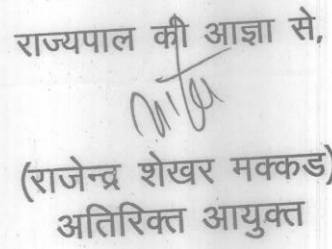 राज्यपाल की आज्ञा से,
(राजेन्द्र शेखर मक्कड)
अतिरिक्त आयुक्त